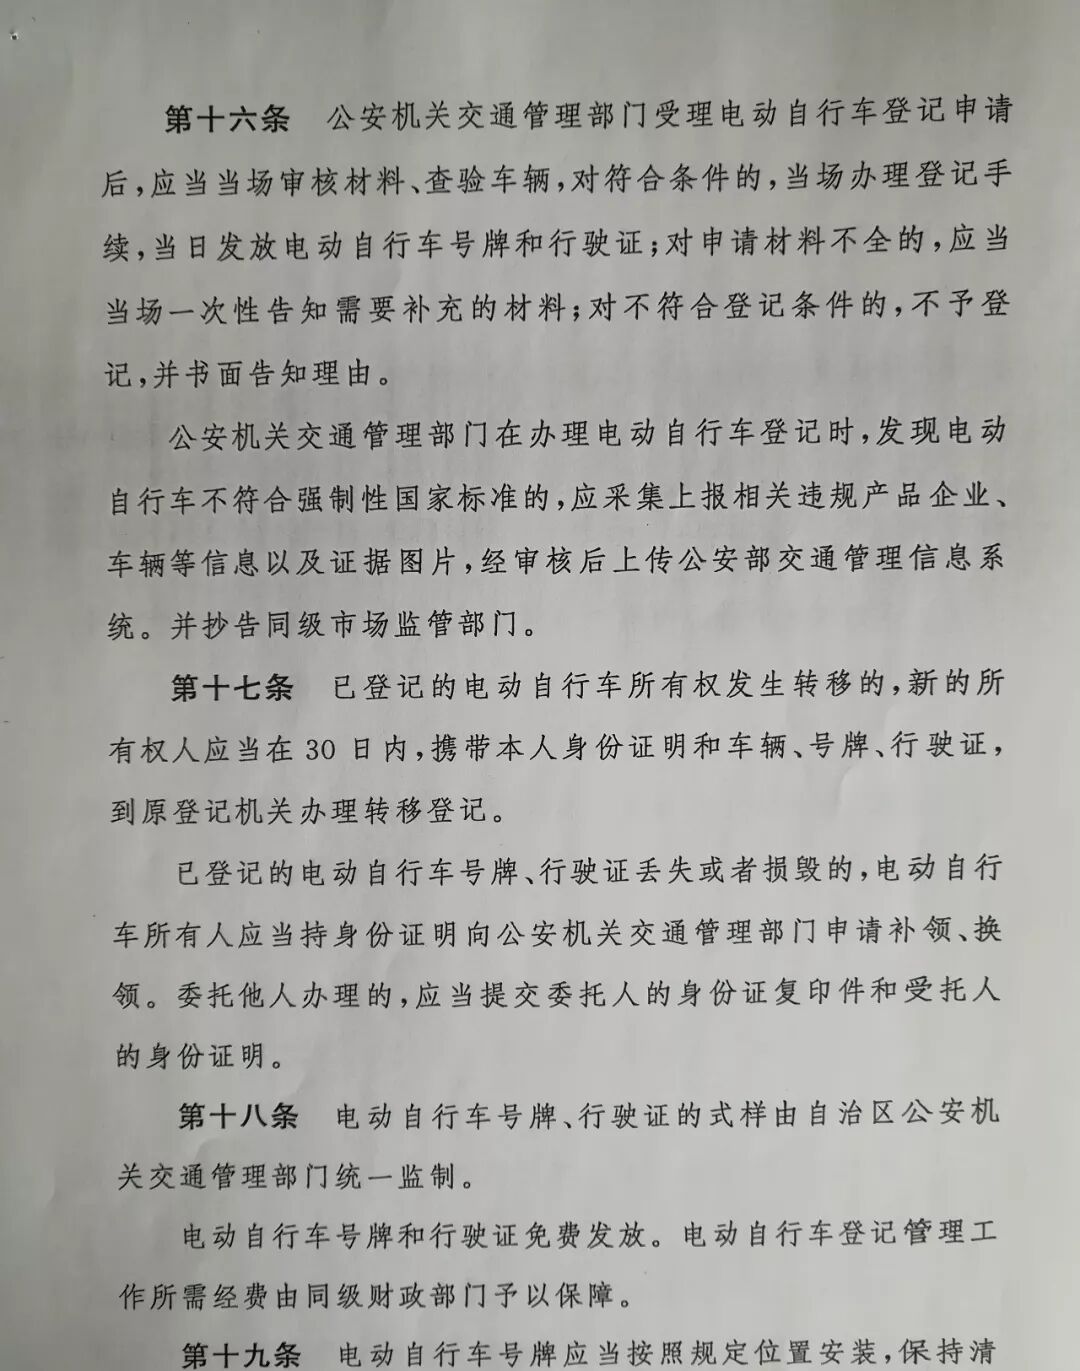 第十六条 公安机关交通管理部门受理电动自行车登记申请
后,应当当场审核材料、查验车辆,对符合条件的,当场办理登记手
续,当日发放电动自行车号牌和行驶证;对申请材料不全的,应当
当场一次性告知需要补充的材料;对不符合登记条件的,不予登
记,并书面告知理由。
公安机关交通管理部门在办理电动自行车登记时,发现电动
自行车不符合强制性国家标准的,应采集上报相关违规产品企业、
车辆等信息以及证据图片,经审核后上传公安部交通管理信息系
统。并抄告同级市场监管部门。
第十七条 已登记的电动自行车所有权发生转移的,新的所
有权人应当在30日内,携带本人身份证明和车辆、号牌、行驶证,
到原登记机关办理转移登记。
已登记的电动自行车号牌、行驶证丢失或者损毁的,电动自行
车所有人应当持身份证明向公安机关交通管理部门申请补领、换
领。委托他人办理的,应当提交委托人的身份证复印件和受托人
的身份证明。
第十八条 电动自行车号牌、行驶证的式样由自治区公安机
关交通管理部门统一监制。
电动自行车号牌和行驶证免费发放。电动自行车登记管理工
作所需经费由同级财政部门予以保障。
第十九条 电动自行车号牌应当按照规定位置安装,保持清